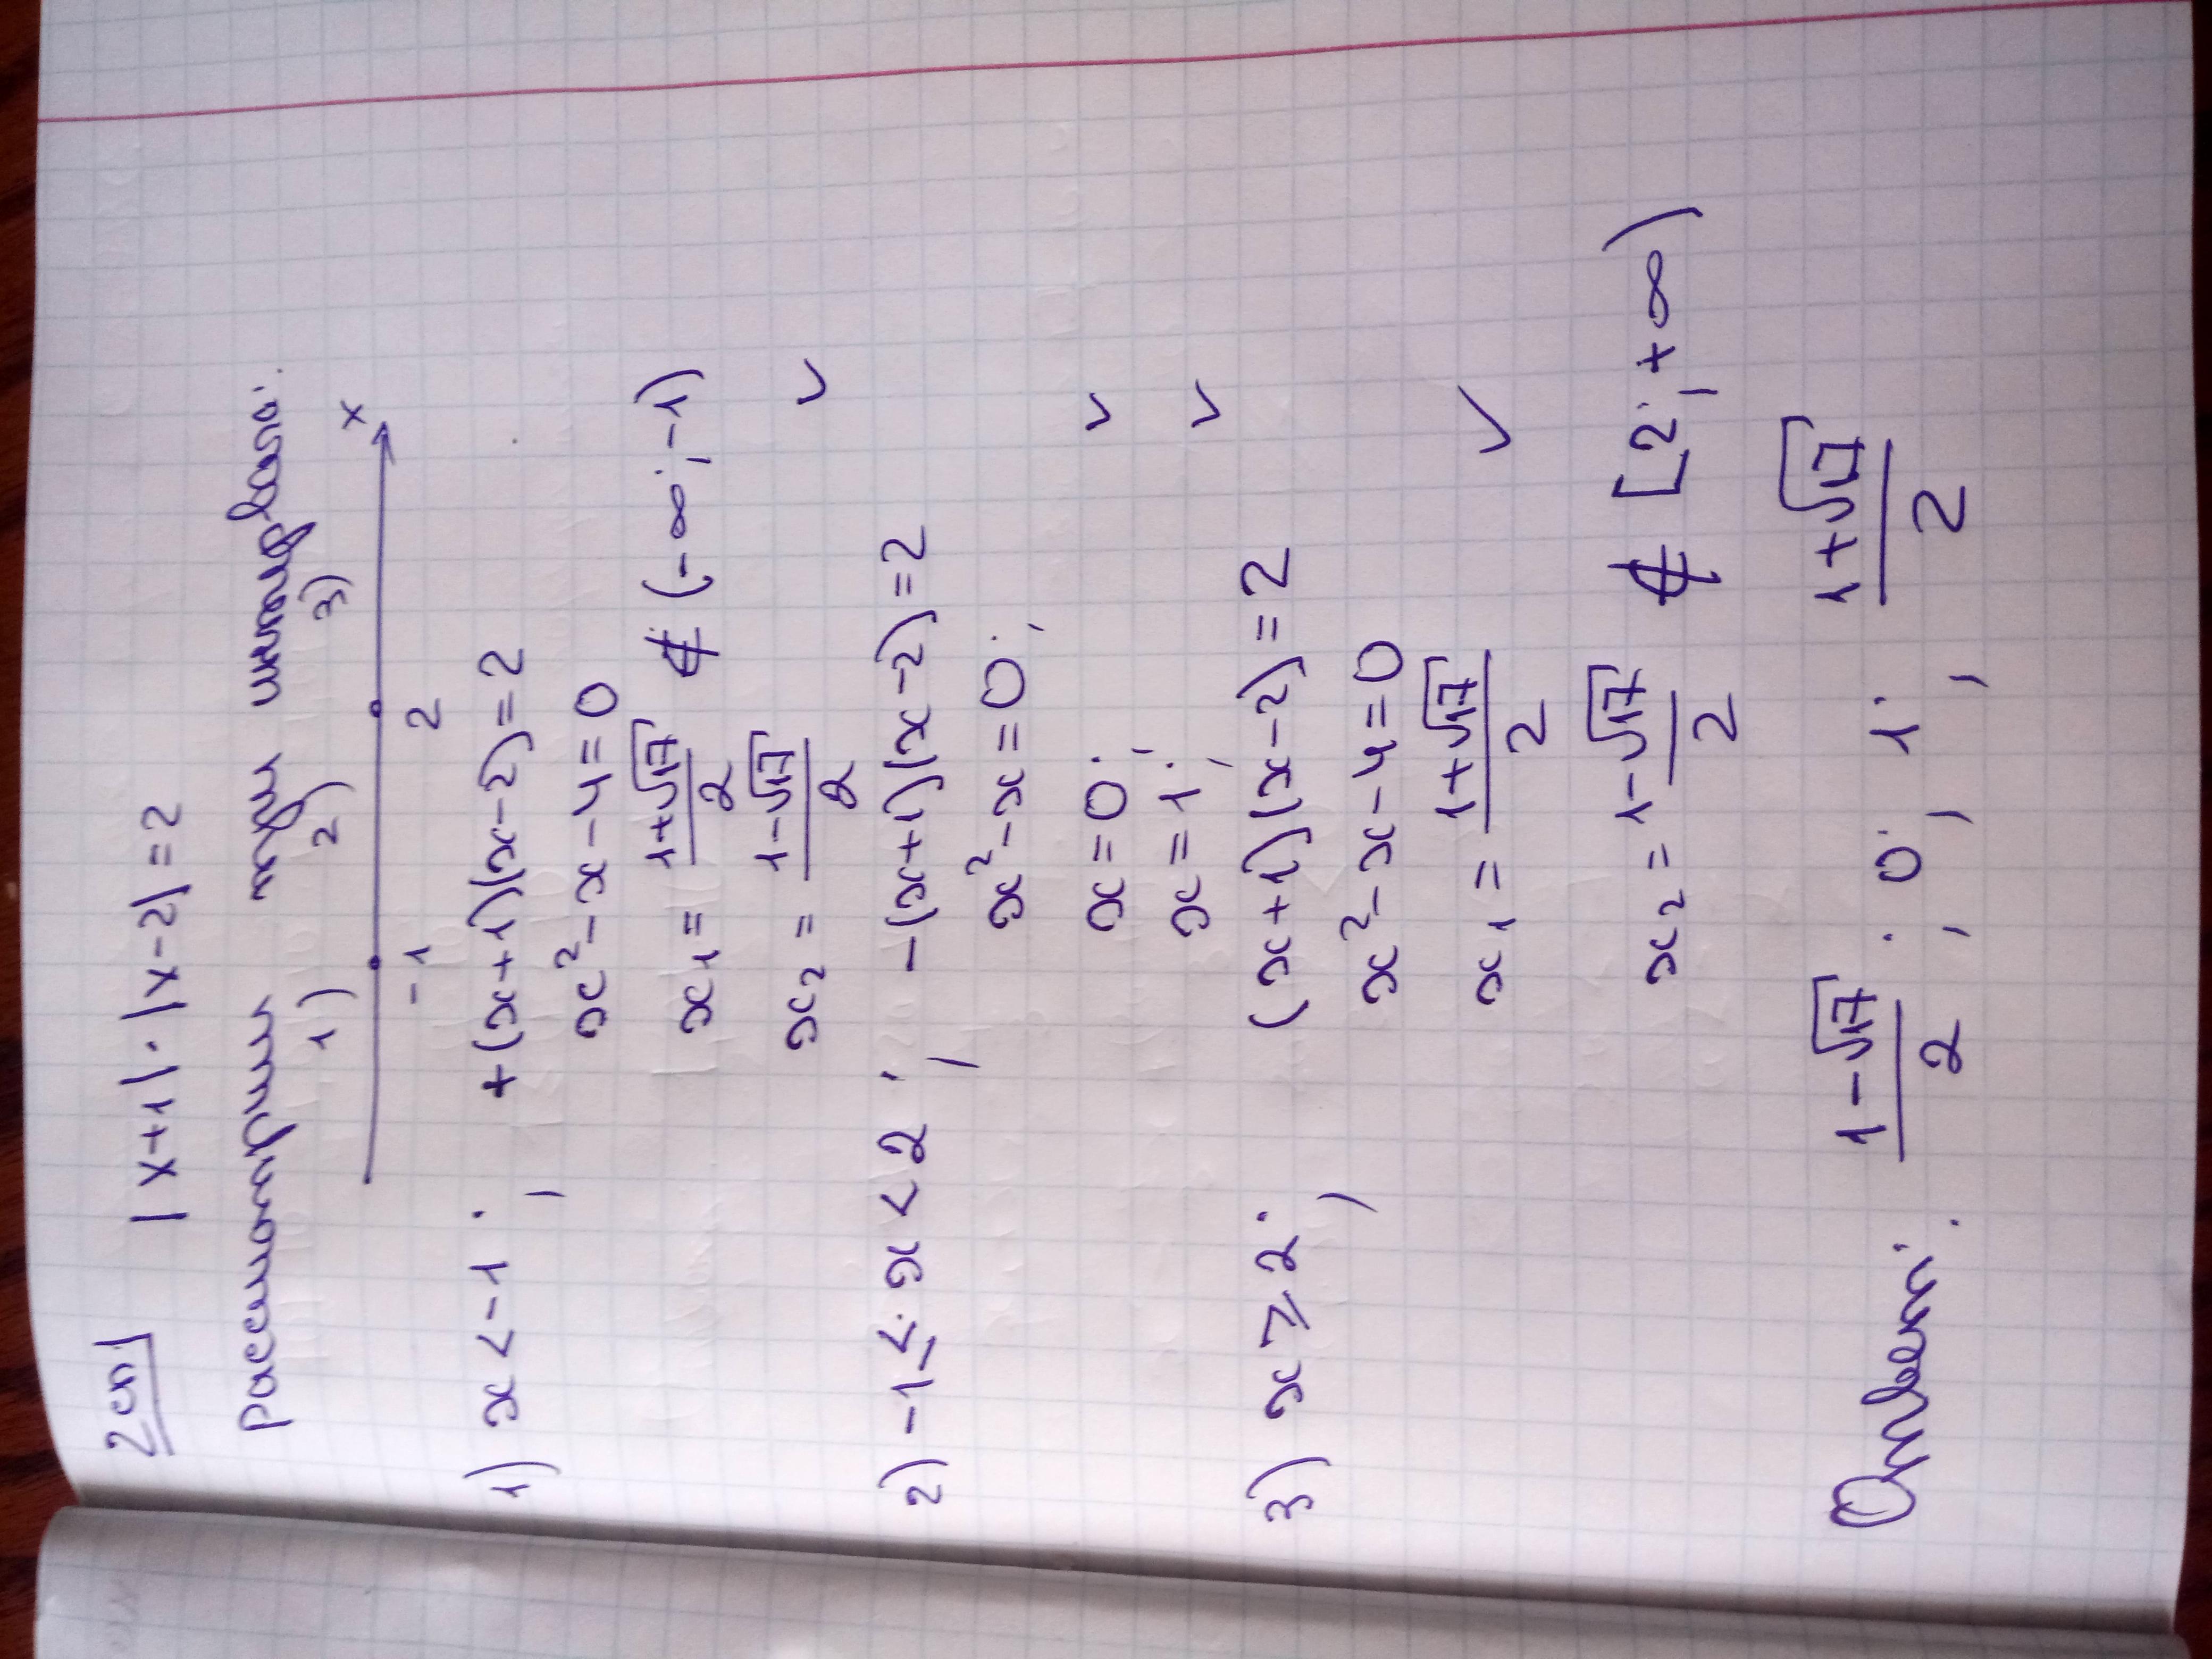 2 сп) |x+1|·|x-2|=2
Рассмотрим три интервала:
1) 2) 3) x
-1 2
1) x<-1; +(x+1)(x-2)=2
x²-x-4=0
x₁= (1+√17)/2 ∉ (-∞;-1)
x₂= (1-√17)/2 ✓
2) -1≤x<2; -(x+1)(x-2)=2
x²-x=0;
x=0; ✓
x=1; ✓
3) x⩾2; (x+1)(x-2)=2
x²-x-4=0
x₁= (1+√17)/2 ✓
x₂= (1-√17)/2 ∉ [2;+∞)
Ответ: (1-√17)/2; 0; 1; (1+√17)/2